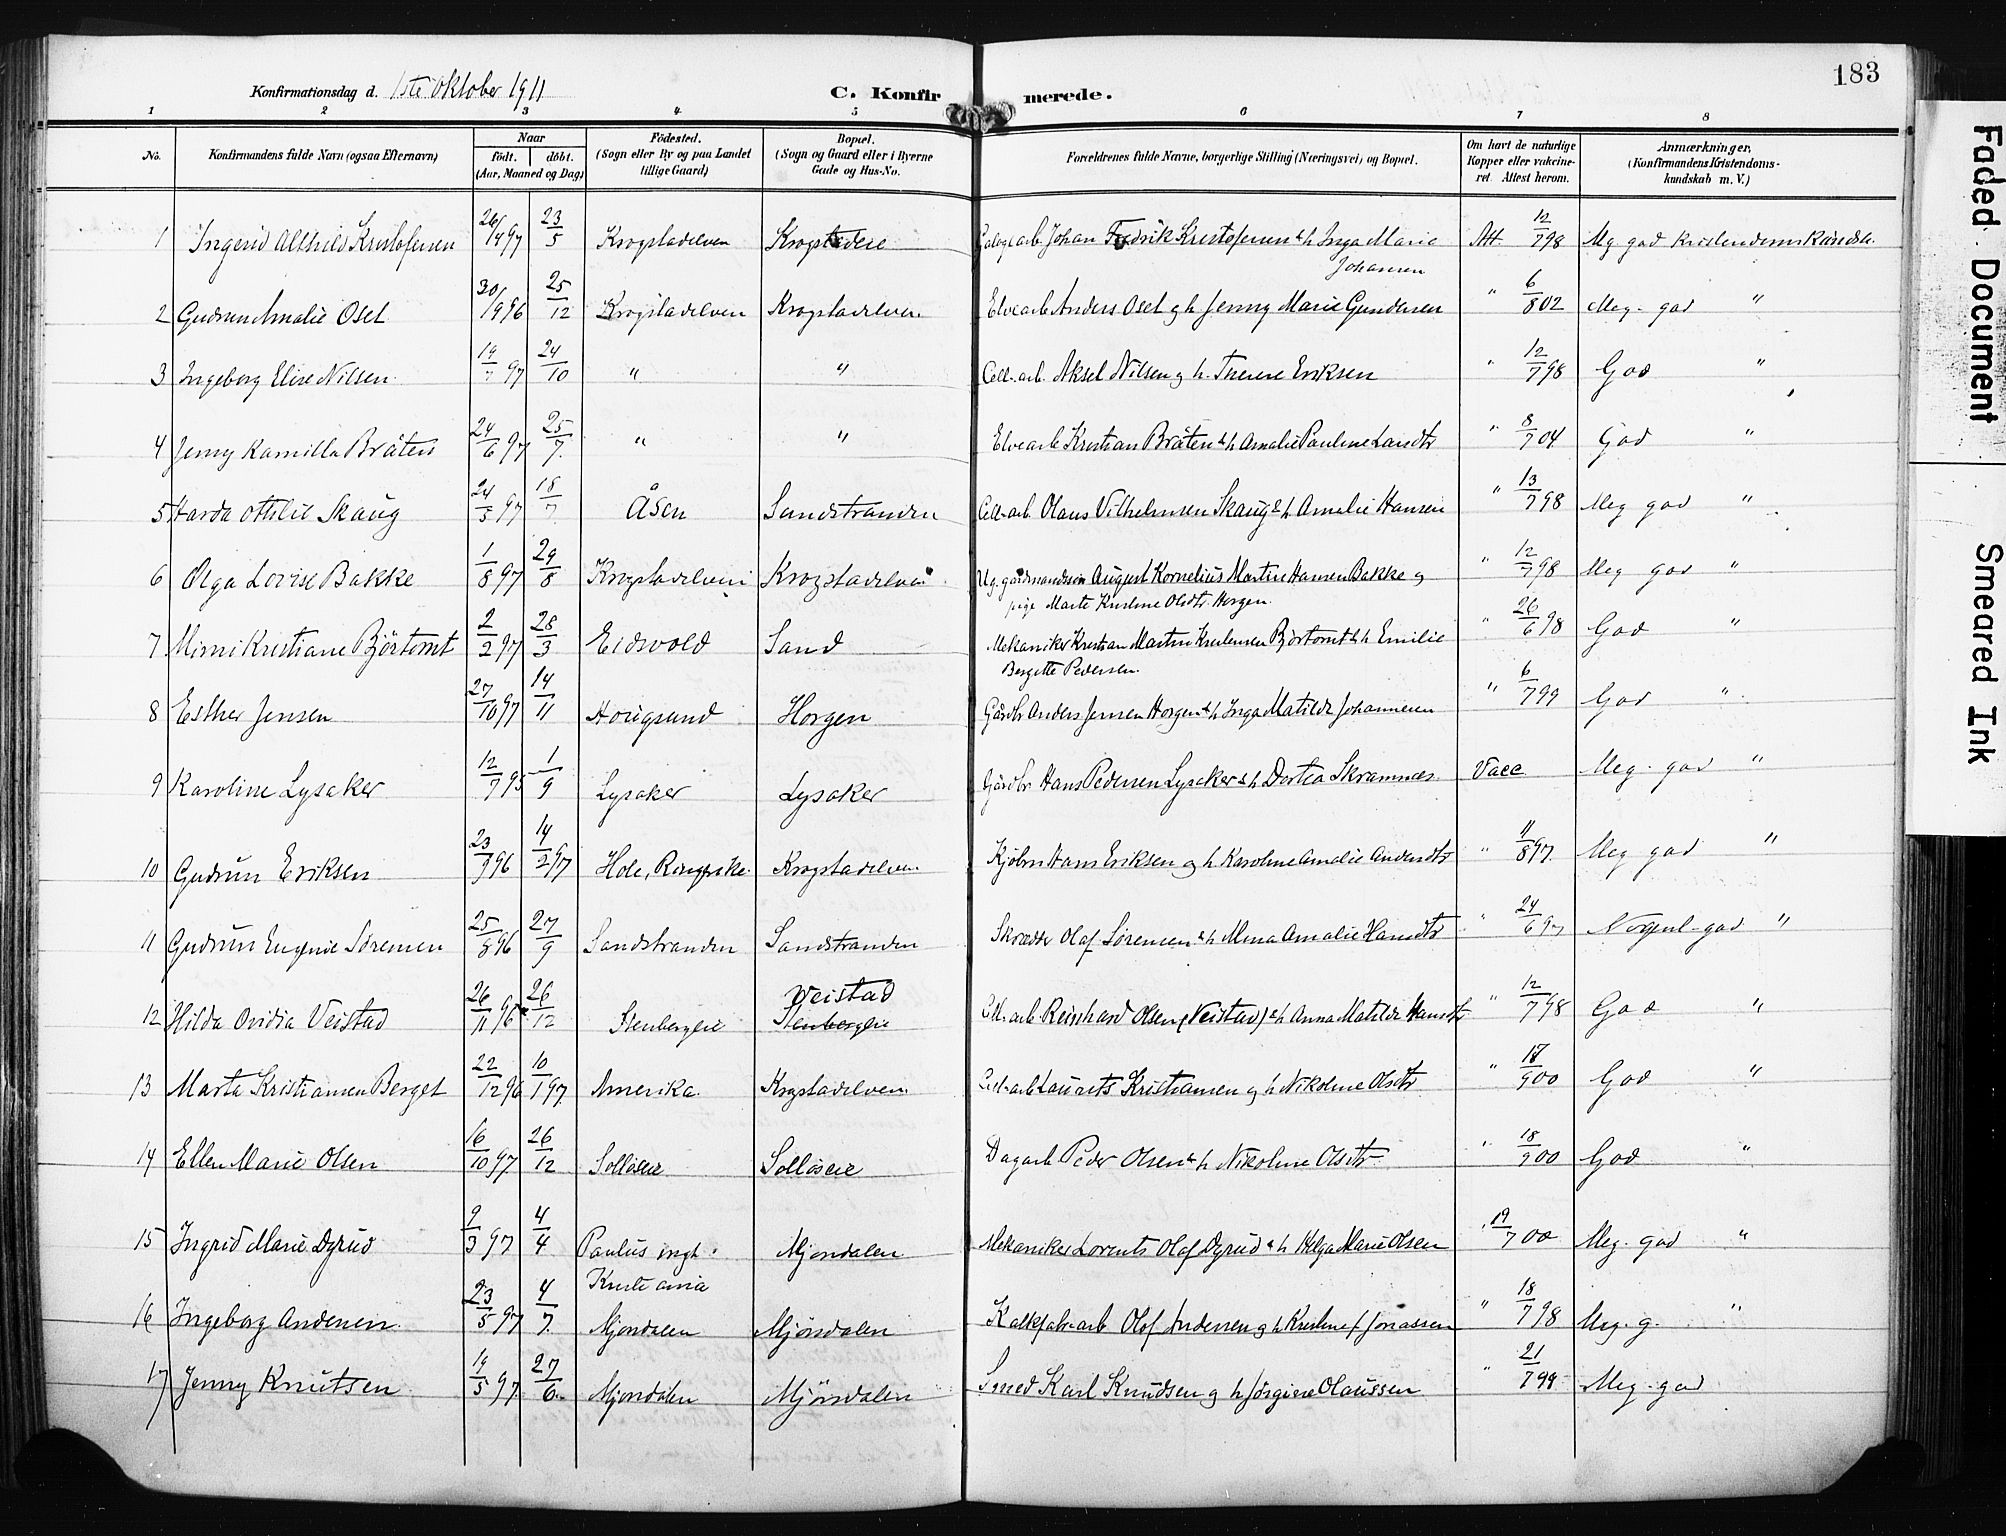 183
Konfirmationsdag d. 1ste Oktober 1911
C. Konfirmerede.
1 2 3 4 5 6 7 8
No.
Konfirmandens fulde Navn (ogsaa Efternavn)
Naar
født. døbt.
(Aar, Maaned og Dag)
Fødested.
(Sogn eller By og paa Landet
tillige Gaard)
Bopæl.
(Sogn og Gaard eller i Byerne
Gade og Hus-No.
Forældrenes fulde Navne, borgerlige Stilling (Næringsvei) og Bopæl.
Om havt de naturlige
Kopper eller vakcine-
ret. Attest herom.
Anmærkninger,
(Konfirmandens Kristendoms-
kundskab m. V.)
1 Ingerid Kristofersen 26/4 97 23/5 Krogstadelven arb. Johan Fredrik Kristofersen & h Inga Marie Att 12/7 98 Mg god
Johansen
2 Gudrun Amalie Oset 30/9 96 25/12 Krogstadelven Krogstadelven Elvearb Anders Oset og h Jenny Marie Gundersen " 6/8 02 Meg. god "
3 Ingeborg Elise Nilsen 97 24/10 " " Cell. arb. Aksel Nilsen og h. Therese Eriksen " 12/7 98 God "
4 Jenny Kamilla Bråten 24/6 97 25/7 " " Elvearb Kristian Bråten & h Amalie Pauline Larsdtr " 8/7 04 God "
5 Harda Ottilie Skaug 24/5 97 18/7 Åsen Sandstranden Cell. arb. Olaus Vilhelmsen Skaug & h Amalie Hansen " 13/7 98 Meg god "
6 Olga Lovise Bakke 1/8 97 29/8 Krogstadelven Krogstadelven Ug. gårdmandssøn August Kornelius Martin Hansen Bakke og " 12/7 98 Meg god "
pige Marte Kristine Olsdtr. Horgen.
7 Mimi Kristiane Bjørtomt 2/2 97 28/3 Eidsvold Sand Mekaniker Kristian Martin Bjørtomt & h Emilie " 26/6 98 God "
Bergitte Pedersen.
8 Esther Jensen 27/10 97 14/11 Hougsund Horgen Gårdbr Anders Jensen Horgen & h Inga Matilde Johannesen " 6/7 99 God "
9 Karoline Lysaker 12/7 95 1/9 Lysaker Lysaker Gårdbr Hans Pedersen Lysaker & h Dortea Skramnes Vacc Meg. god "
10 Gudrun Eriksen 23/9 96 14/2 97 Hole, Ringerike Krogstadelven Kjøbm Hans Eriksen og h Karoline Amalie Andersdtr " 11/8 97. Meg god "
11 Gudrun Eugenie Sørensen 25/8 96 27/9 Sandstranden Sandstranden Skrædder Olaf Sørensen & h Mina Amalie Hansdtr " 24/6 97 god "
12 Hilda Ovidia Veistad 26/11 96 26/12 Stenberglie Veistad Cell. arb Reinhard Olsen (Veistad) & h Anna Matilde Hansdtr " 12/7 98 God "
Stenberglie
13 Marta Kristiansen Berget 22/12 96 10/1 97. Amerika Krogstadelven Cell. arb Laurits Kristiansen og h Nikoline Olsdtr " 9 00 God "
14 Ellen Marie Olsen 16/10 97 26/12 Solløseie Solløseie Dagarb Peder Olsen & h Nikoline Olsdtr " 18/9 00 God "
15 Ingrid Marie Dyrud 9/3 97 4/4 Paulus mgh. Mjøndalen Mekaniker Lorents Olaf Dyrud & h Helga Marie Olsen " 19/7 00 Meg. god "
Kristiania
16 Ingeborg Andersen. 23/5 97 4/7. Mjøndalen Mjøndalen Kalkfabr. arb Olof Andersen og h Kristine f Jonassen " 18/7 98 Meg. g. "
17 Jenny Knutsen 19/5 97. 27/6 Mjøndalen Mjøndalen Smed Karl Knudsen og h Jørgine Olaussen " 21/7 98 Meg. god
Faded Document
Smeared Ink